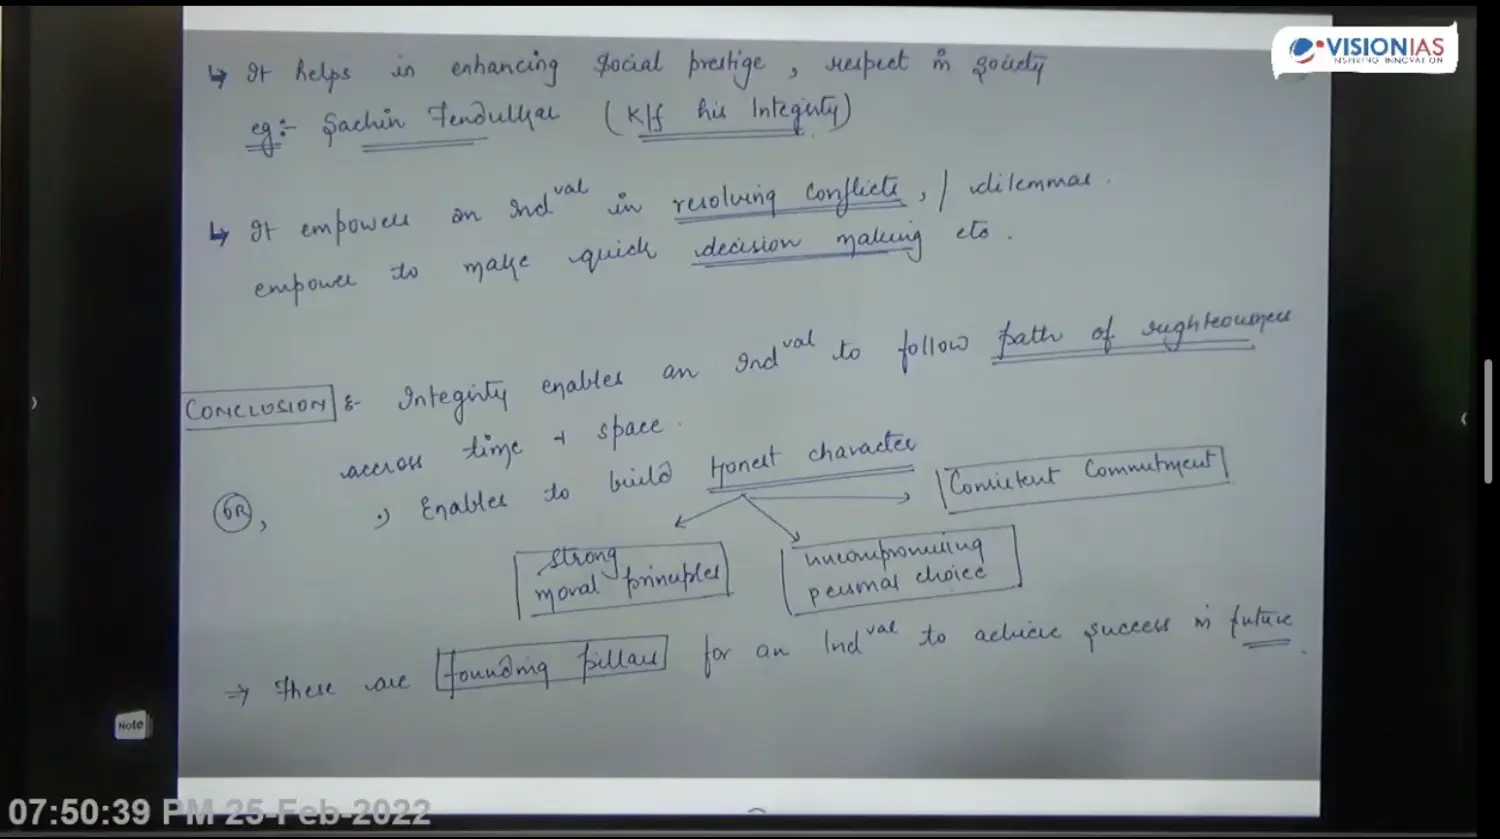 VISIONIAS
INSPIRING INNOVATION
↳ It helps in enhancing social prestige, respect in society
eg:- Sachin Tendulkar (K/f his Integrity)
↳ It empowers an Ind^val in resolving conflicts, / dilemmas.
empower to make quick decision making etc.
CONCLUSION :- Integrity enables an Ind^val to follow path of righteousness
accross time + space.
OR, •) Enables to build Honest character
Consistent Commitment
strong
moral principles
uncompromising
personal choice
⇒ These are founding pillars for an Ind^val to achieve success in future.
Note
07:50:39 PM 25-Feb-2022